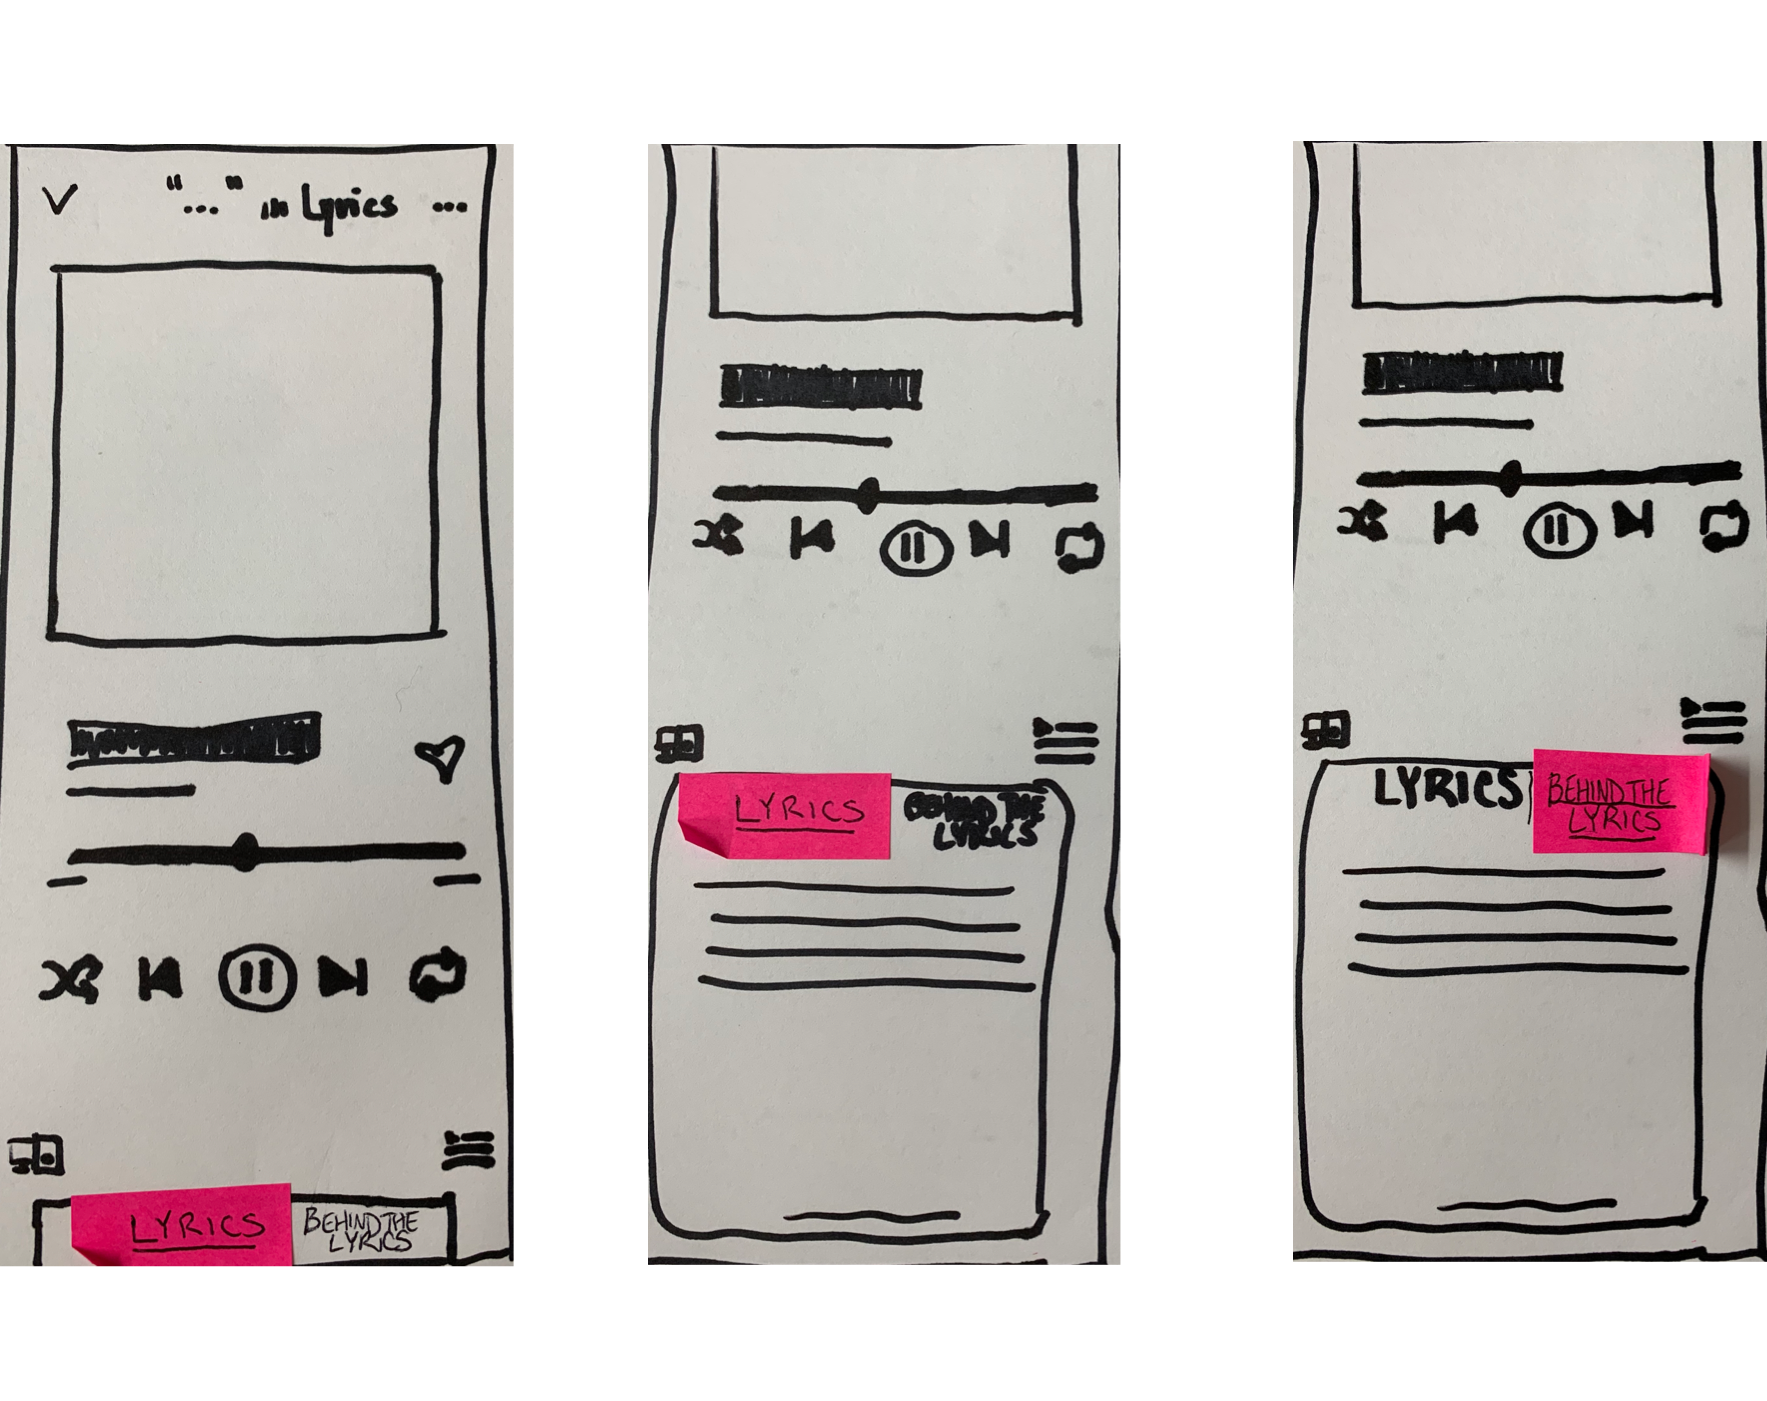 "..." in Lyrics ...
LYRICS
BEHIND THE
LYRICS
LYRICS
BEHIND THE
LYRICS
LYRICS
BEHIND THE
LYRICS